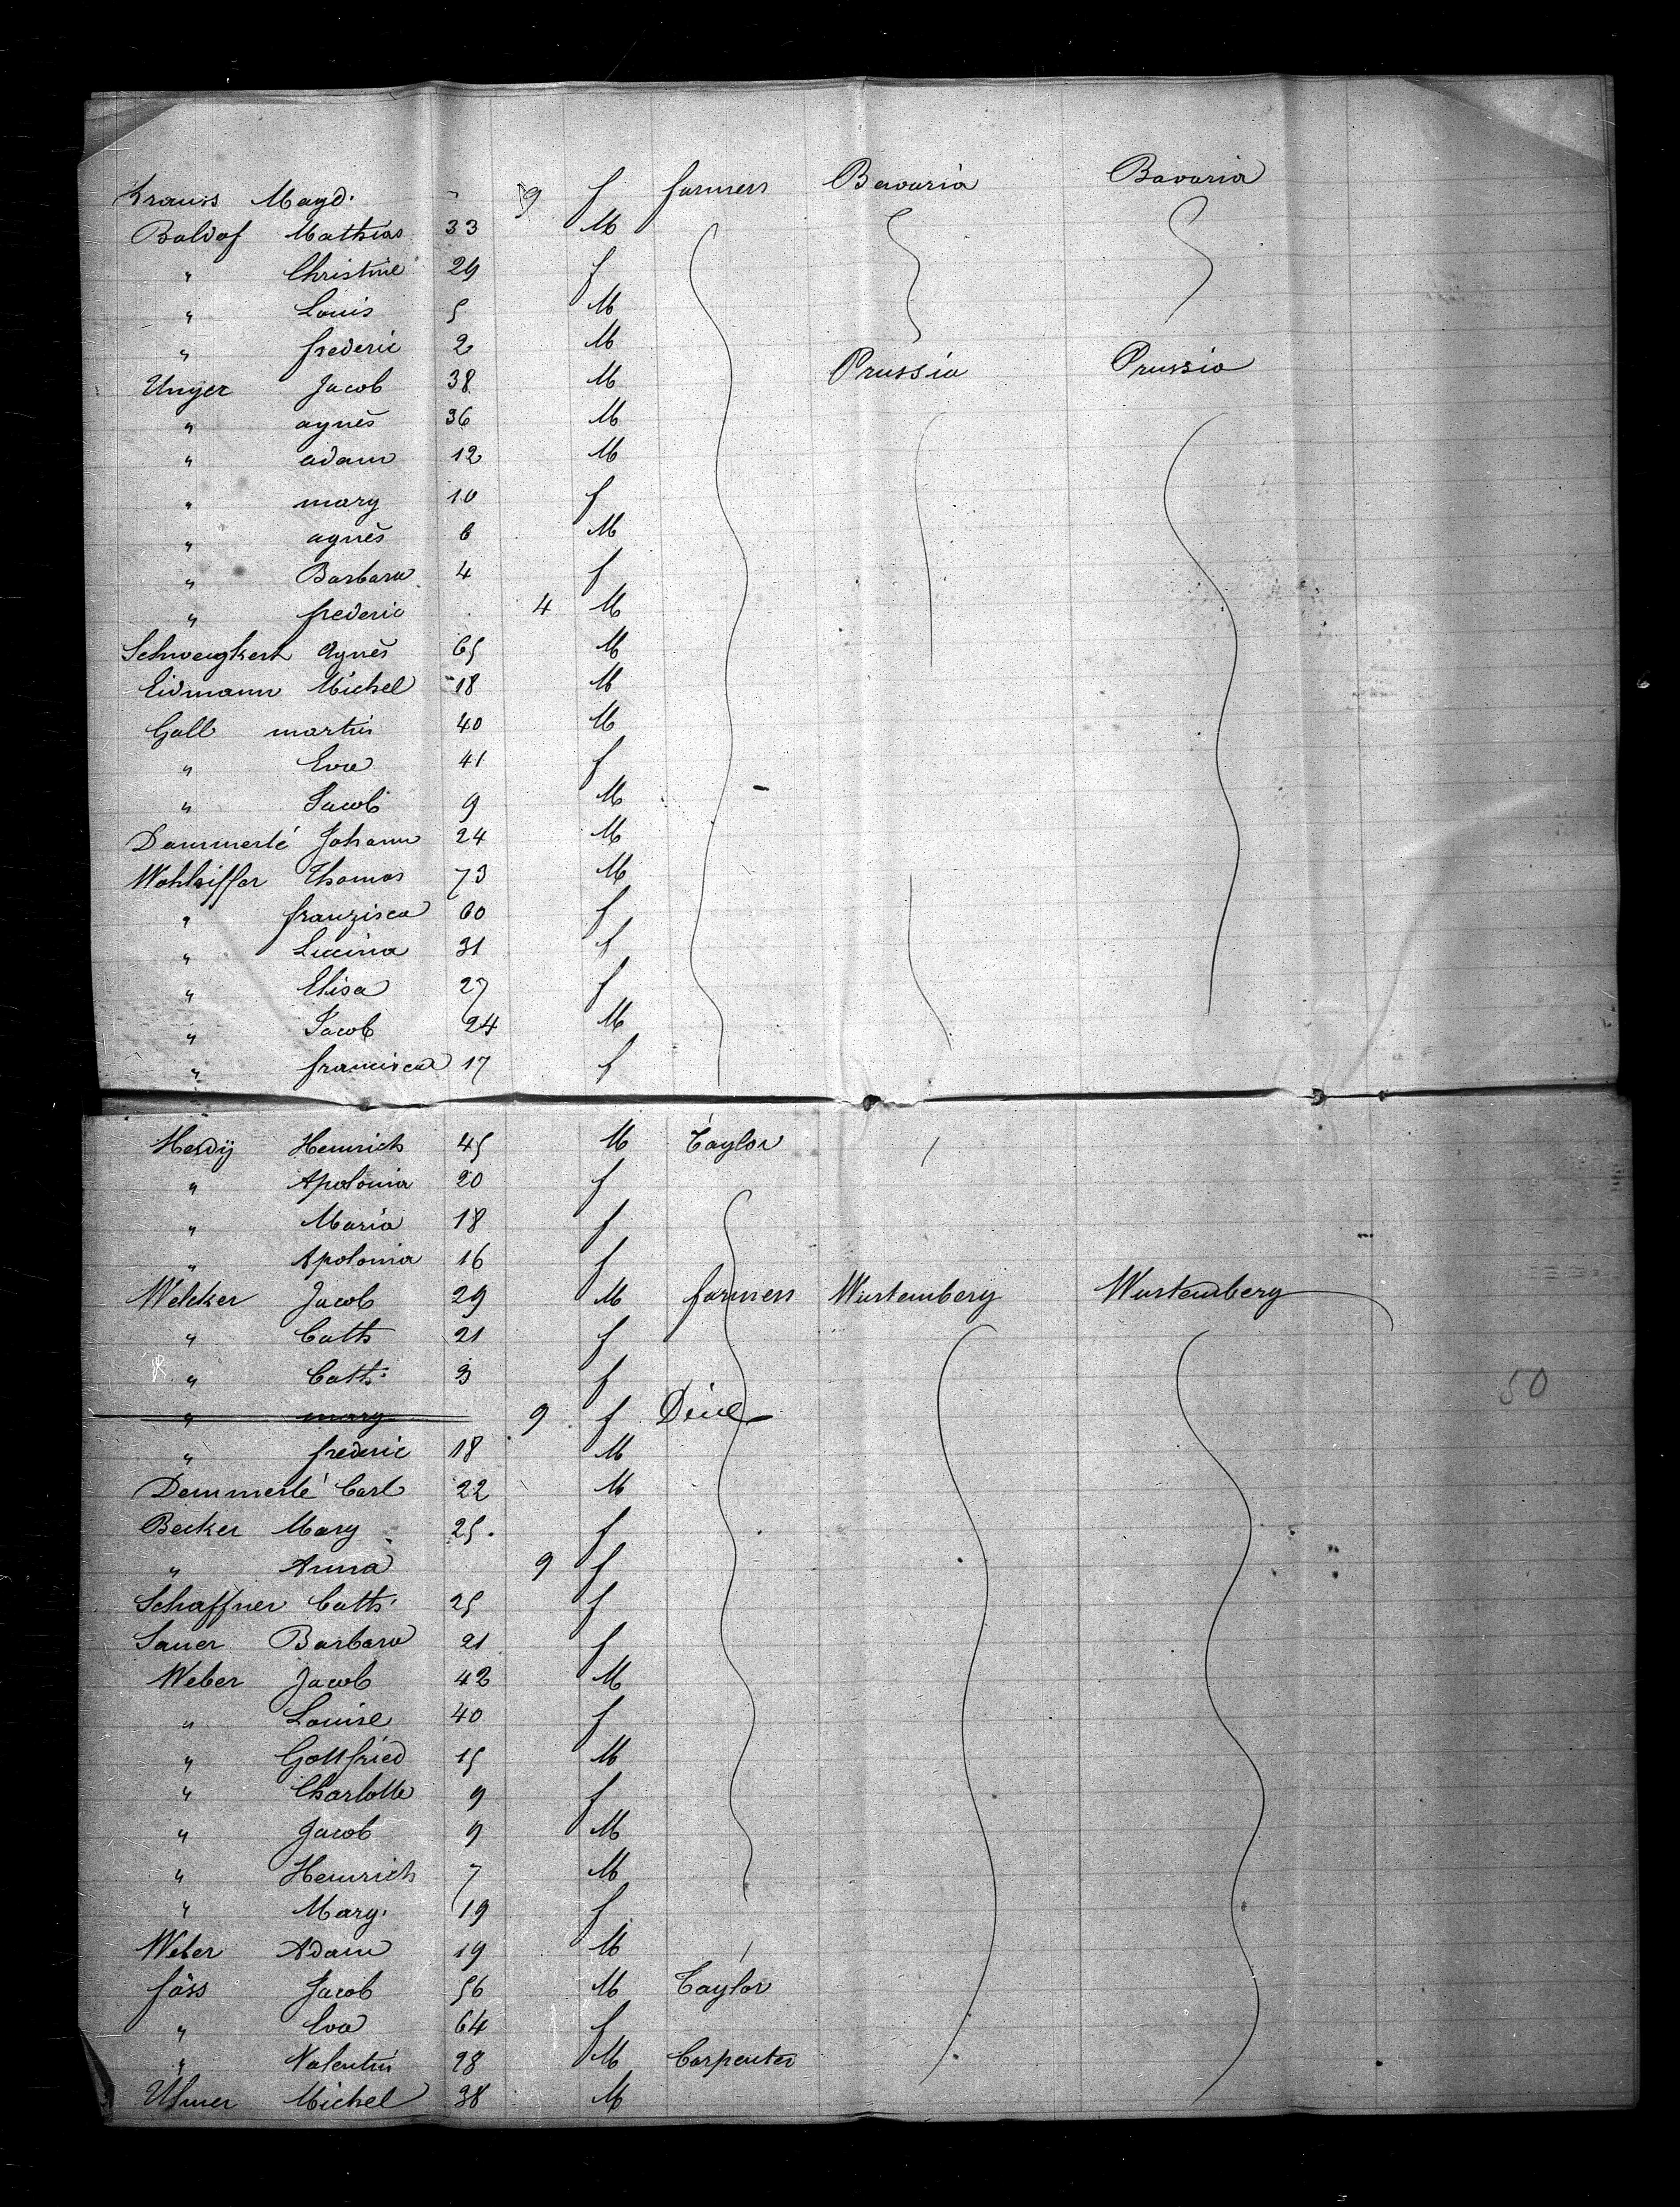 Kraus Magd. 9 f farmers Bavaria Bavaria
Baldof Mathias 33 M
" Christine 29 f
" Louis 5 M
" frederic 2 M
Unger Jacob 38 M Prussia Prussia
" agnes 36 M
" adam 12 M
" mary 10 f
" agnes 6 M
" Barbara 4 f
" frederic 4 M
Schweigkert Agnes 65 M
Eidmann Michel 18 M
Gall martin 40 M
" Eva 41 f
" Jacob 9 M
Dammerlé Johann 24 M
Wohlsiffer Thomas 73 M
" franzisca 60 f
" Luccina 31 f
" Elisa 27 f
" Jacob 24 M
" francisca 17 f
Herdÿ Heinrich 45 M Taylor
" Apolonia 20 f
" Maria 18 f
" Apolonia 16 f
Welcker Jacob 29 M farmers Wurtemberg Wurtemberg
" Cath 21 f
" Cath: 3 f
" mary 9 f Died
" frederic 18 M
Dammerlé Carl 22 M
Becker Mary 25 f
" Anna 9 f
Schaffner Cath: 25 f
Sauer Barbara 21 f
Weber Jacob 42 M
" Louise 40 f
" Gottfried 15 M
" Charlotte 9 f
" Jacob 9 M
" Heinrich 7 M
" Mary. 19 f
Weber Adam 19 M
fäss Jacob 56 M Taylor
" Eva 64 f
" Valentin 28 M Carpenter
Ulmer Michel 38 M
50